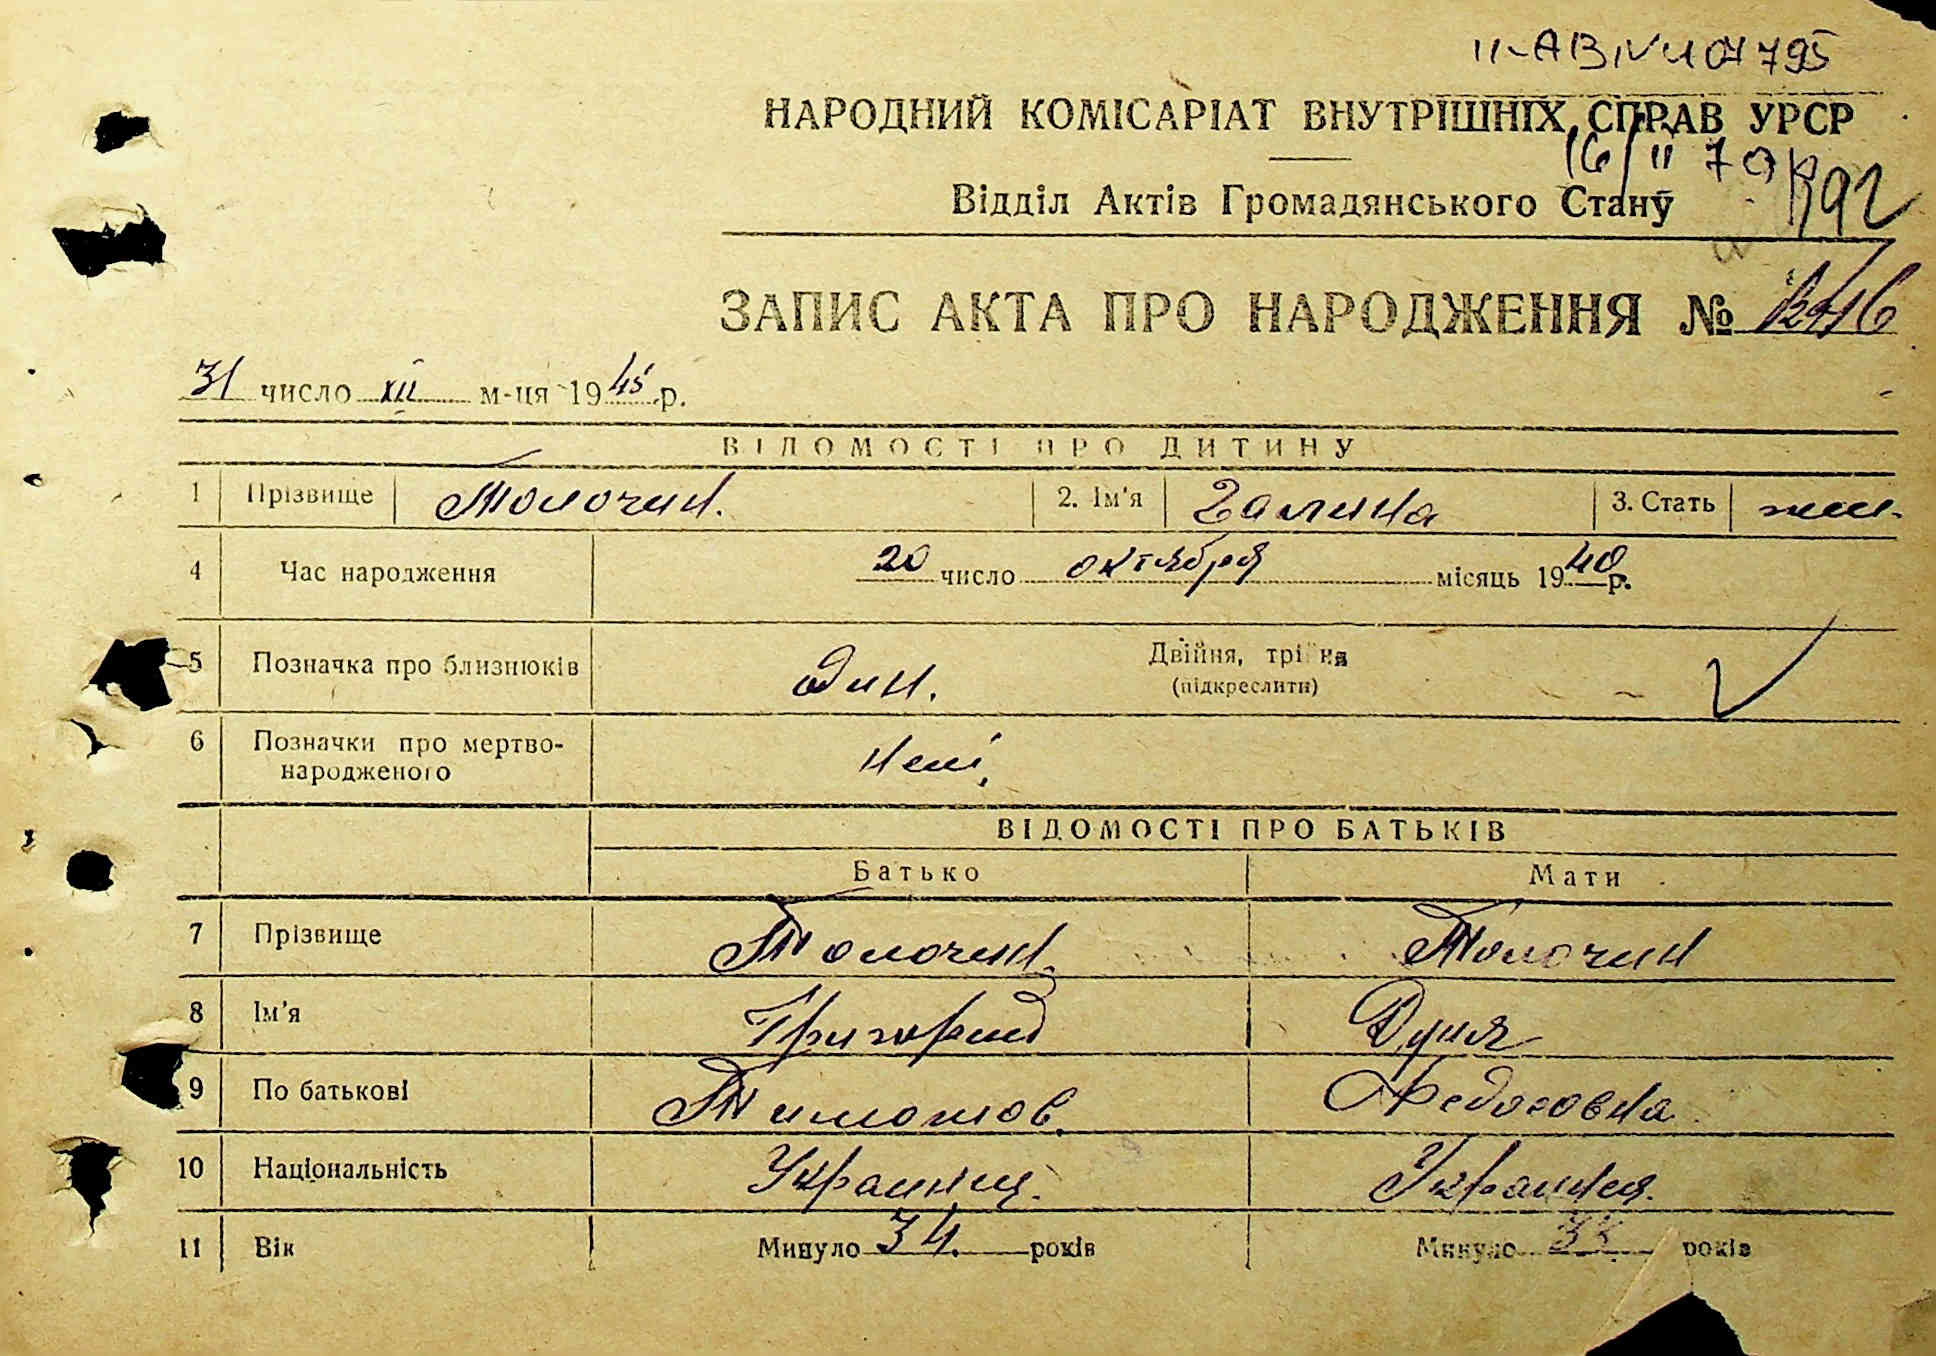 II-АВ № 407795
НАРОДНИЙ КОМІСАРІАТ ВНУТРІШНІХ СПРАВ УРСР
16/II 70
Відділ Актів Громадянського Стану
192
ЗАПИС АКТА ПРО НАРОДЖЕННЯ №
31 число XII м-ця 1945 р.
ВІДОМОСТІ ПРО ДИТИНУ
1 Прізвище Толочин. 2. Ім'я Галина 3. Стать жен.
4 Час народження 20 число октября місяць 1940 р.
5 Позначка про близнюків Один. Двійня, трійня
(підкреслити)
6 Позначки про мертво-
народженого
ВІДОМОСТІ ПРО БАТЬКІВ
Батько Мати
7 Прізвище Толочин Толочин
8 Ім'я Григорий Дуня
9 По батькові Тимофов. Федосовна
10 Національність Украинец. Украинка.
11 Вік Минуло 34. років Минуло років